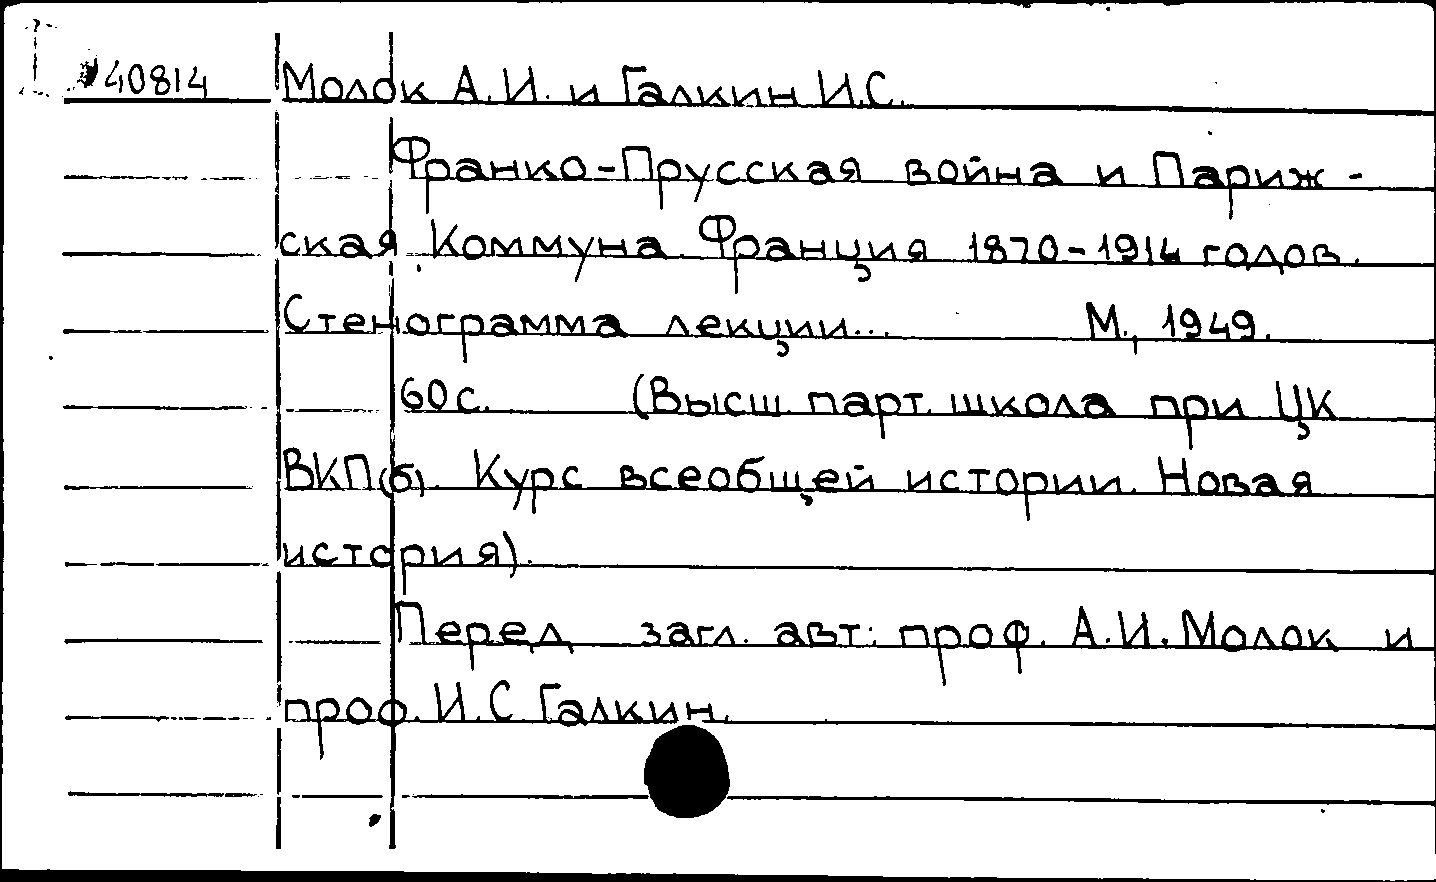 40814 Молок А.И. и Галкин И.С.
Франко-Прусская война и Париж-
ская Коммуна. Франция 1870-1914 годов.
Стенограмма лекции... М., 1949.
60 с. (Высш. парт. школа при ЦК
ВКП(б). Курс всеобщей истории. Новая
история).
Перед загл. авт.: проф. А.И. Молок и
проф. И.С Галкин.